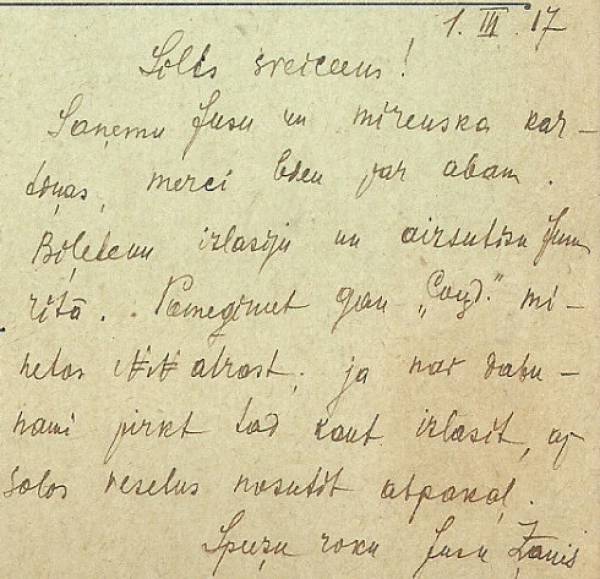 1. III. 17
Silts sveiciens!
Saņemu Jusu un mirenska kar-
tiņas, merci bien par abam.
Biļetenu izlasiju un aizsutisu Jums
ritā. Pamēginiet gan „ mi-
netos N N atrast, ja nav dabu-
nami pirkt tad kaut izlasit, ap
solos veselus nosutit atpakaļ.
Spiežu roku Jusu Žanis